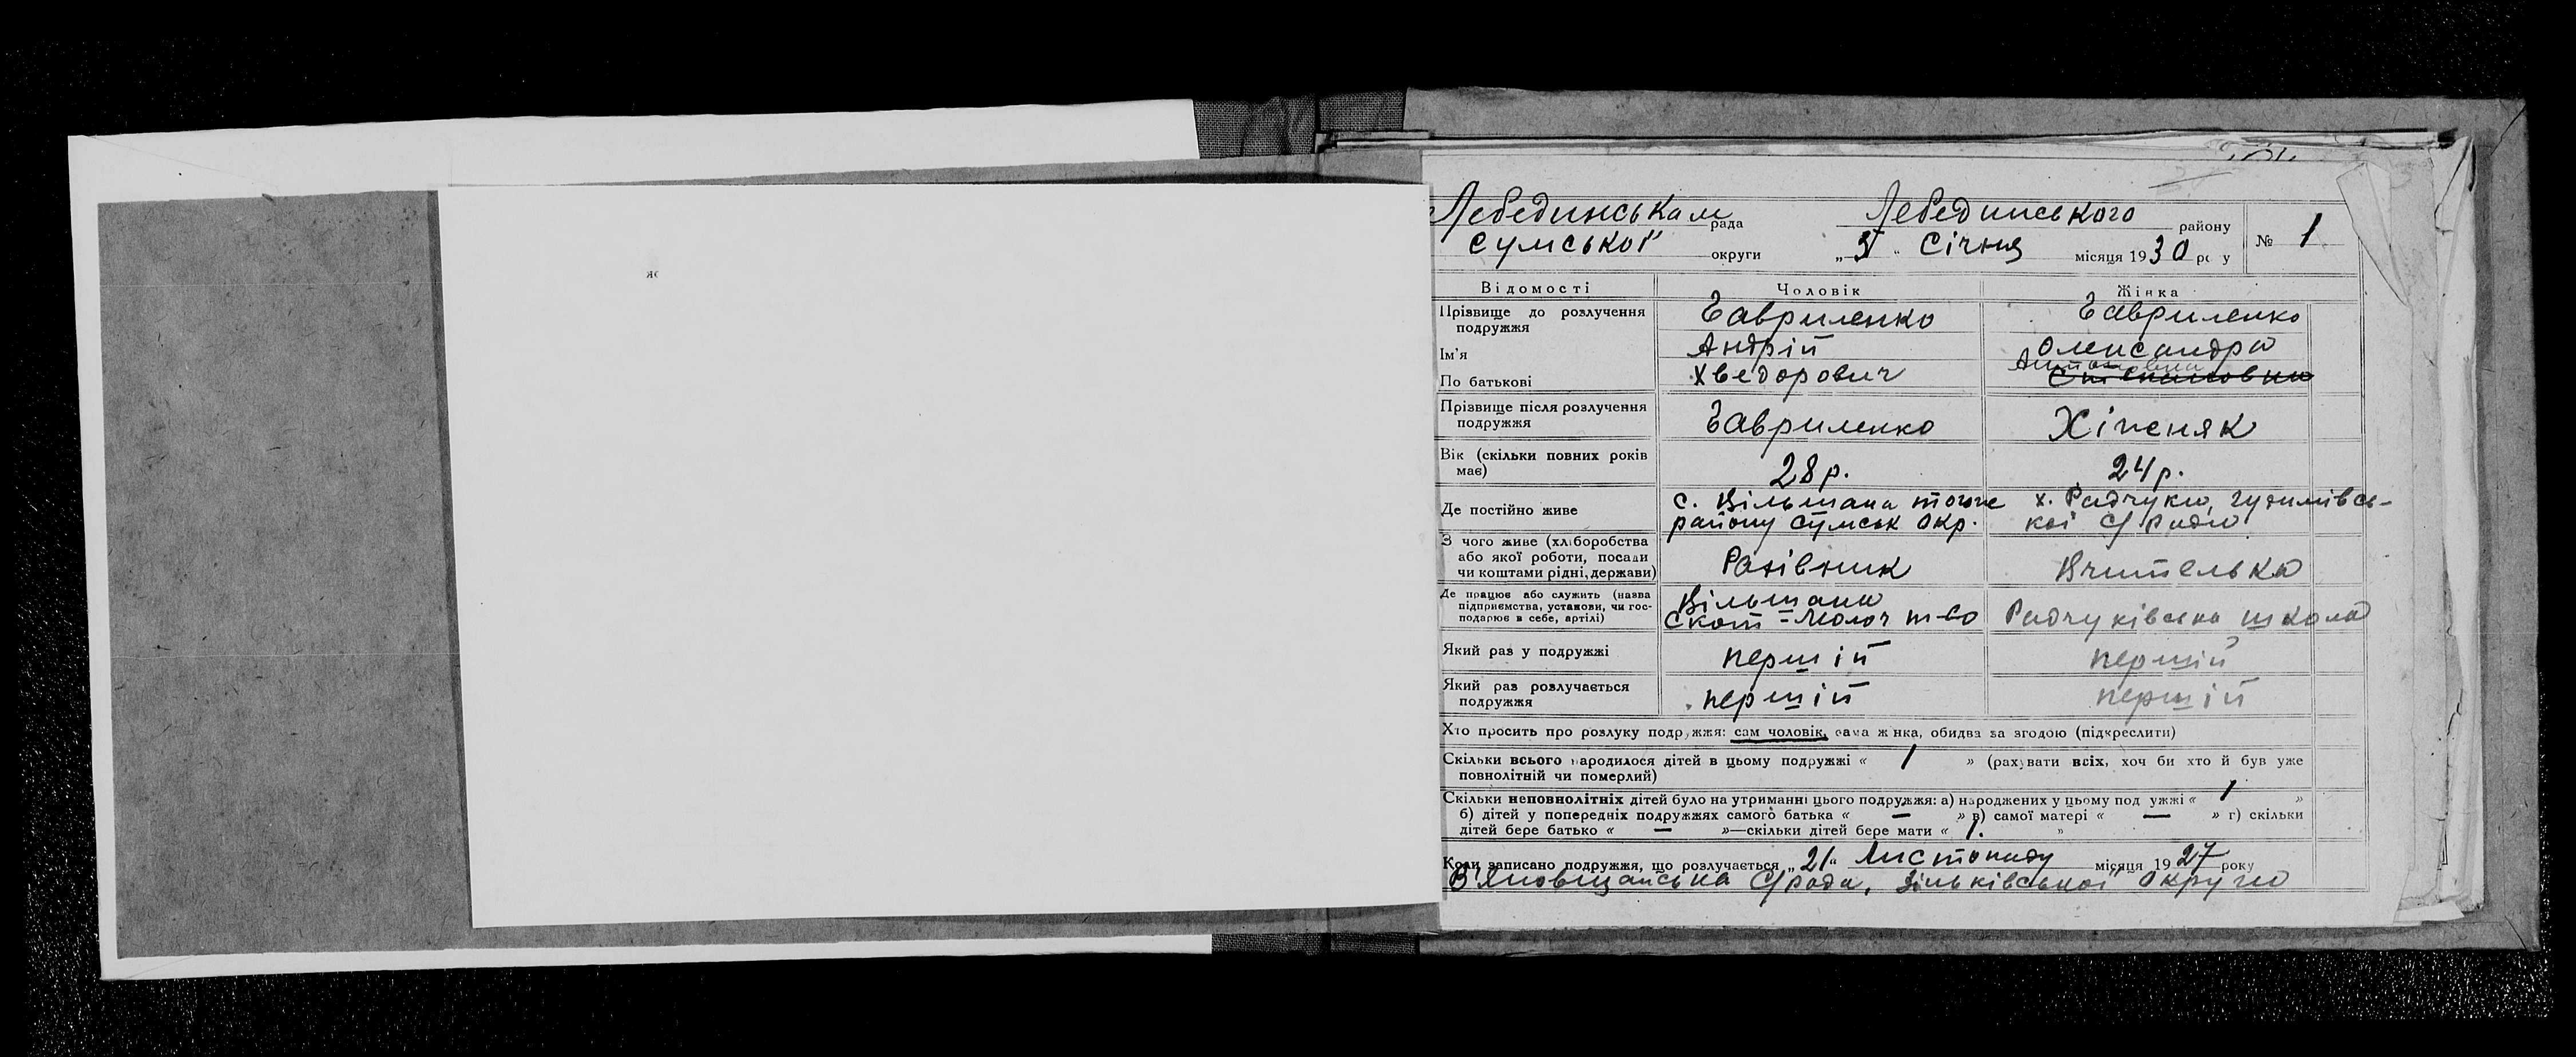 яс
Лебединська м рада Лебединського району
Сумської округи „3" Січня місяця 1930 року № 1
Відомості Чоловік Жінка
Прізвище до розлучення Гавриленко Гавриленко
подружжя
Ім'я Андрій Олександра
По батькові Хведорович Антоновна
Прізвище після розлучення Гавриленко Хіженяк
подружжя
Вік (скільки повних років 28 р. 24 р.
має)
Де постійно живе с. Вільшана тогож х. Радчуки, гудимівсь-
району Сумськ Окр. кої С/ради
З чого живе (хліборобства
або якої роботи, посади Рахівник Вчителька
чи коштами рідні, держави)
Де працює або служить (назва Вільшана
підприємства, установи, чи гос- Скот-Молоч т-во Радчуківська школа
подарює в себе, артілі)
Який раз у подружжі перший перший
Який раз розлучається перший перший
подружжя
Хто просить про розлуку подружжя: сам чоловік, сама жінка, обидва за згодою (підкреслити)
Скільки всього народилося дітей в цьому подружжі « 1 » (рахувати всіх, хоч би хто й був уже
повнолітній чи померлий)
Скільки неповнолітніх дітей було на утриманні цього подружжя: а) народжених у цьому подружжі « 1 »
б) дітей у попередніх подружжях самого батька « — » в) самої матері « — » г) скільки
дітей бере батько « — »—скільки дітей бере мати « 1. »
Коли записано подружжя, що розлучається „21" Листопаду місяця 1927 року
С/рада, Зіньківської Округи